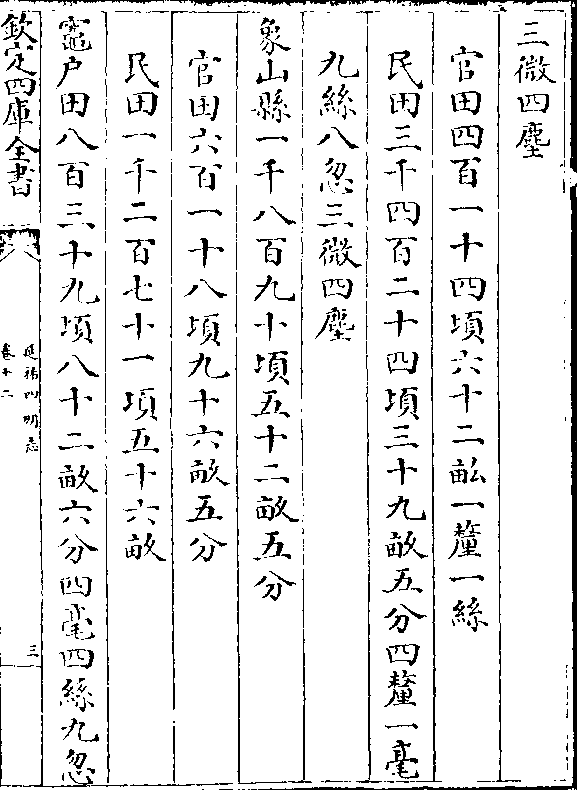 三微四塵
官田四百一十四頃六十二畝一釐一絲
民田三千四百二十四頃三十九畝五分四釐一毫
九絲八忽三微四塵
象山縣一千八百九十頃五十二畝五分
官田六百一十八頃九十六畝五分
民田一千二百七十一頃五十六畝
竈户田八百三十九頃八十二畝六分四毫四絲九忽
欽定四庫全書
延祐四明志
卷十二
三